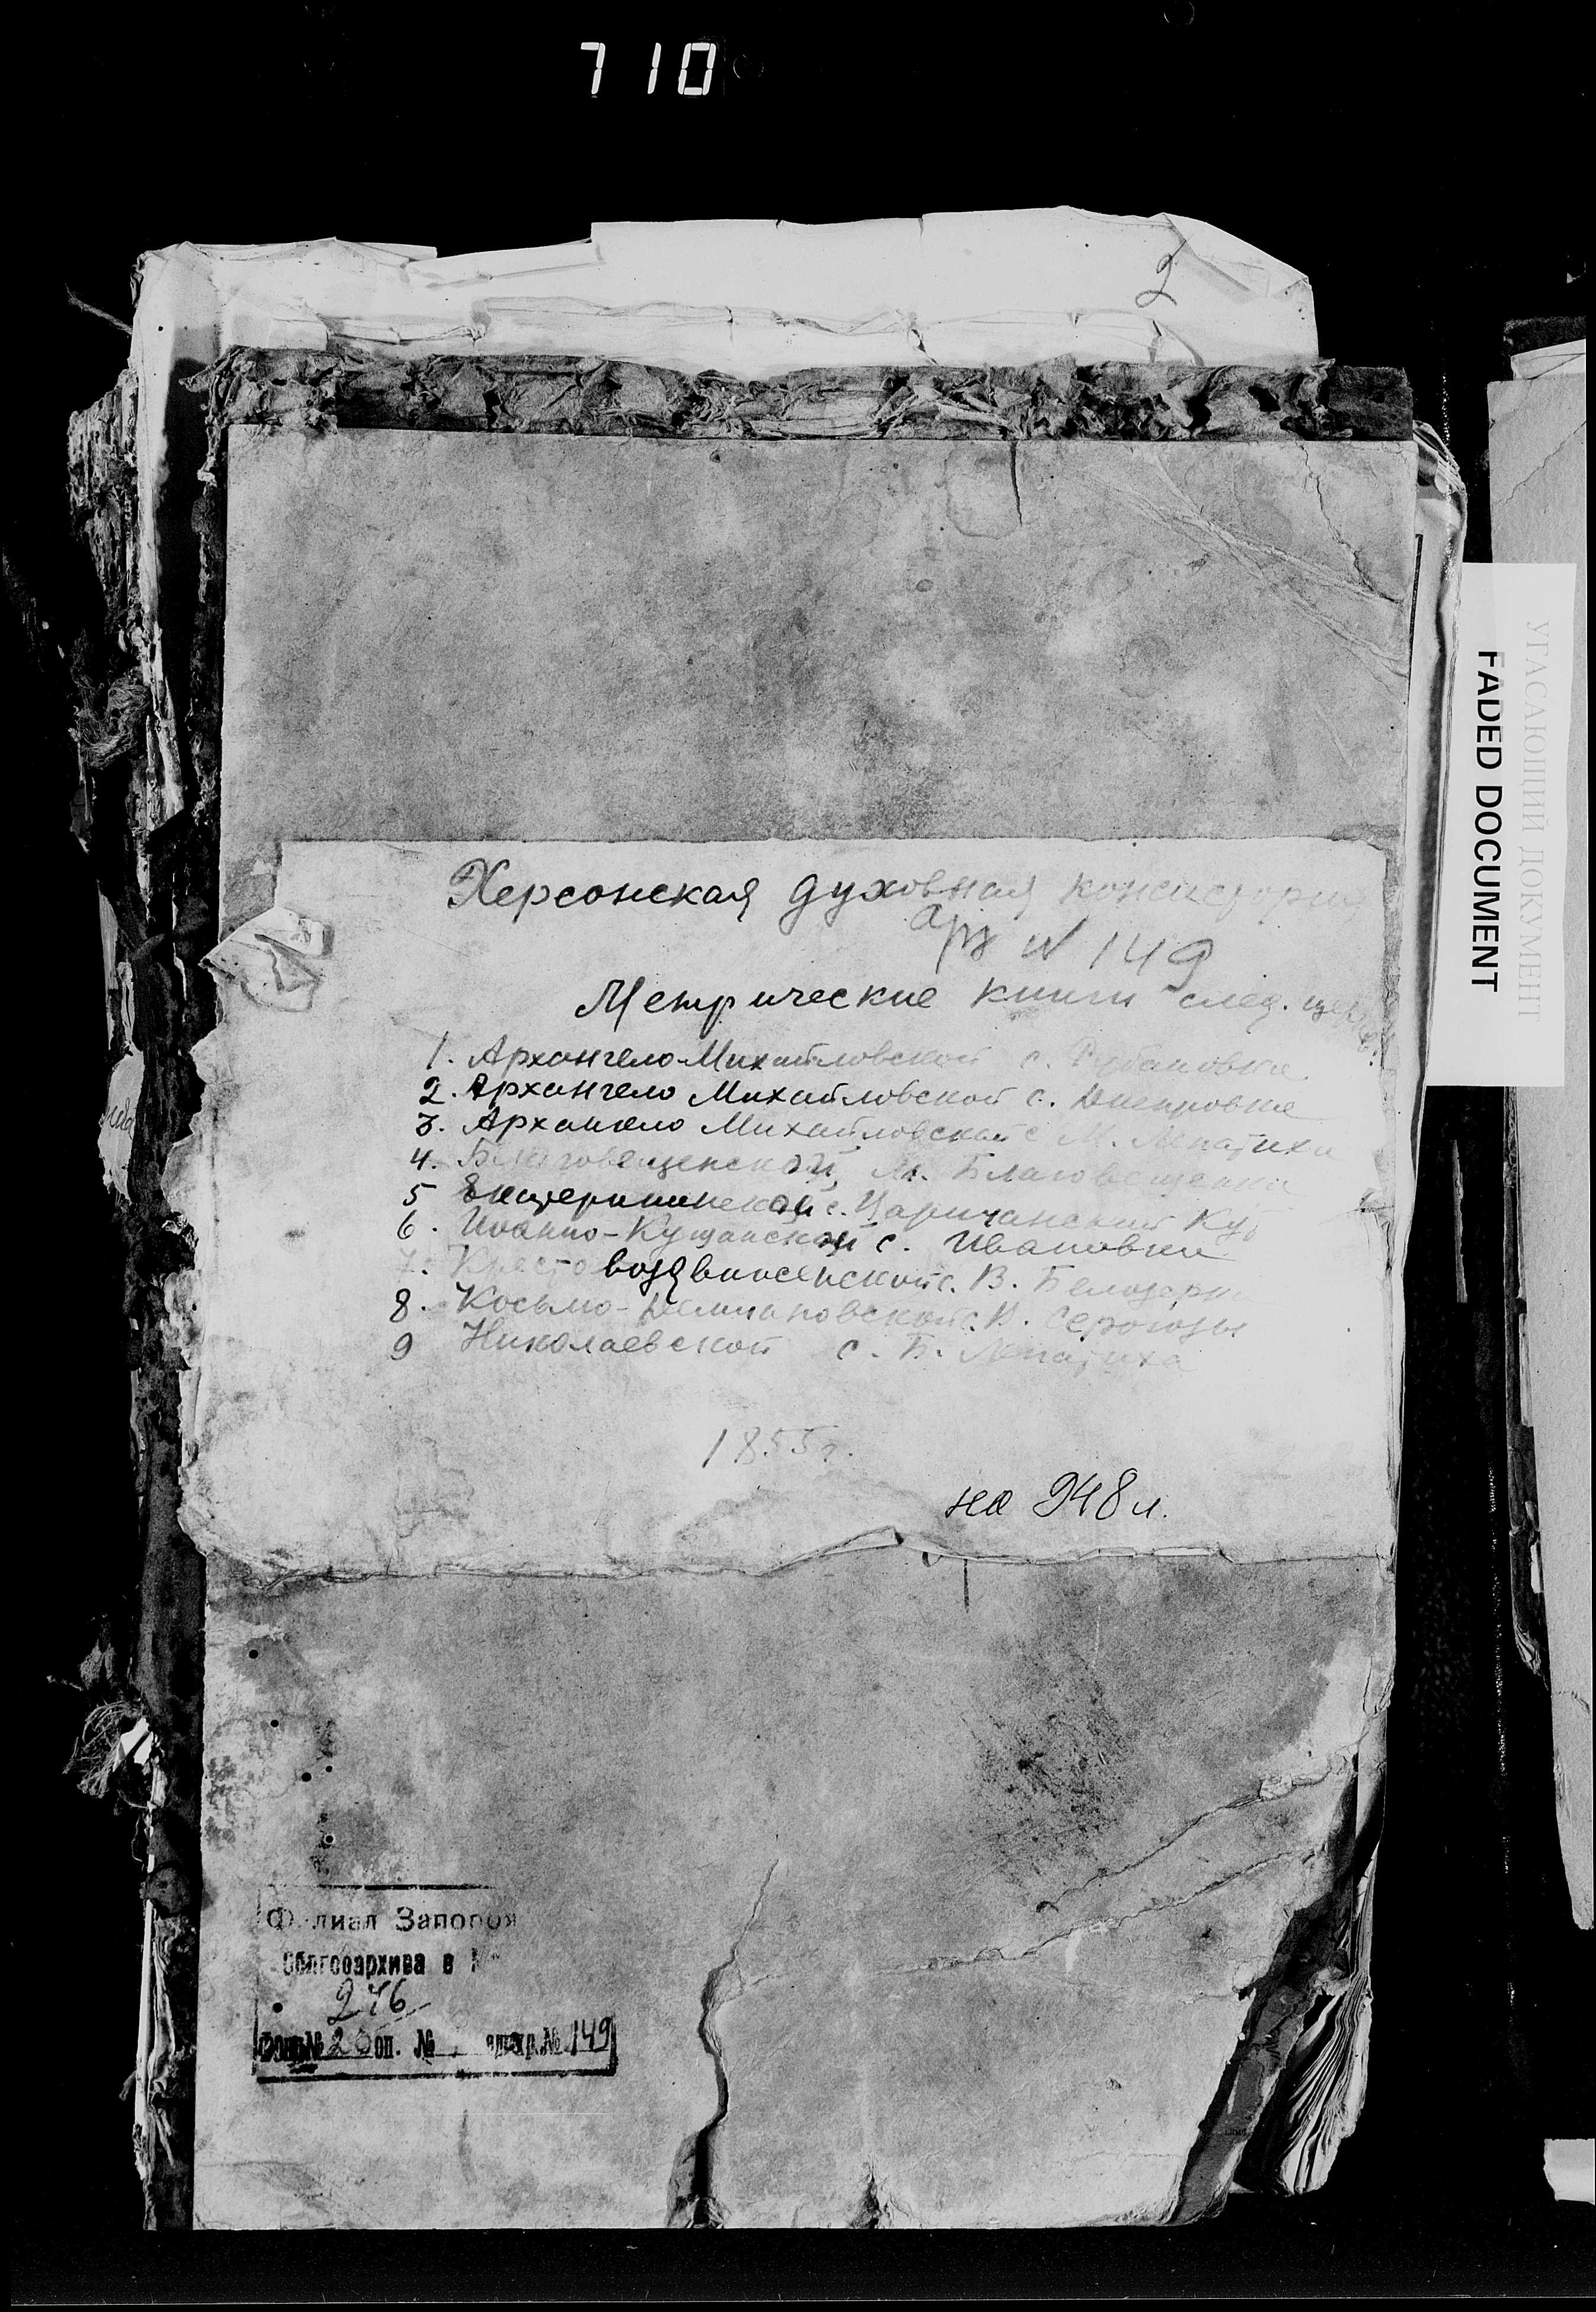 710
2
Херсонская духовная консистория
арх N 149
Метрические книги след. церк
1. Архангело-Михайловской с. Рубановка
2. Архангело Михайловской с. Днепровка
3. Архангело Михайловской с М. Лепатиха
4. Благовещенской, м. Благовещенка
5 Екатерининской с. Царичанский Кут
6. Иоанно-Кущанской с. Ивановка
7. Крестовоздвиженской с. В. Белозерка
8. Косьмо-Демиановской с. В. Серогозы
9 Николаевской с. Б. Лепатиха
1855 г.
на 948 л.
Ф лиал Запорож
Облгосархива в
246
Фонд № 20 оп. № едхр. № 149
FADED DOCUMENT
УГАСАЮЩИЙ ДОКУМЕНТ